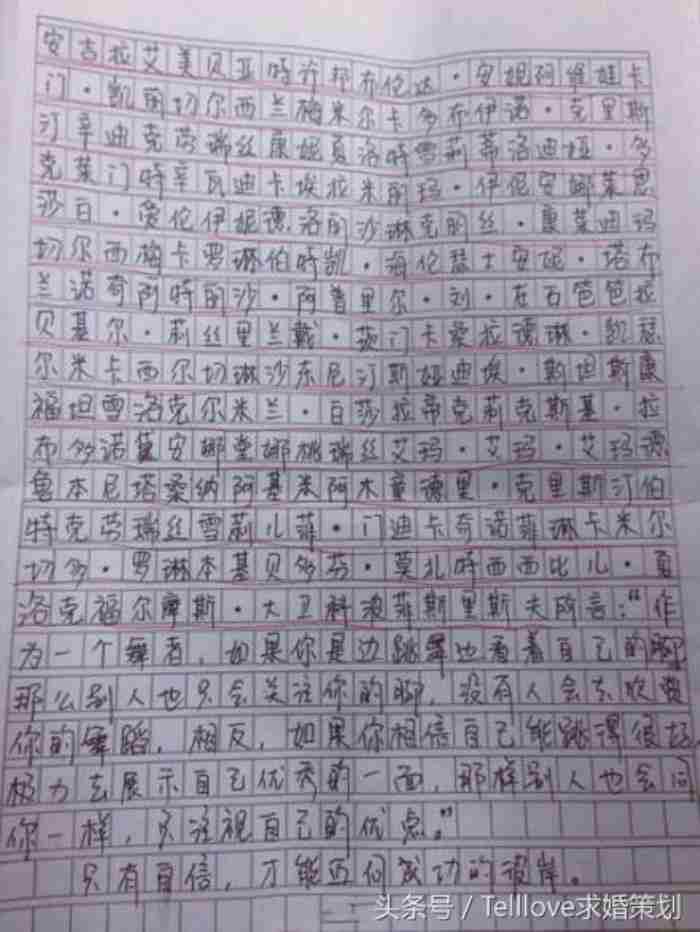 安吉拉艾美贝亚特许邦布伦达·安妮阿维娃卡
门·凯茵切尔西兰梅米尔卡多布伊诺·克里斯
汀辛迪克劳瑞丝康妮夏洛特雪莉蒂洛迪娅·多
克莱门特辛瓦迪卡埃拉米丽玛·伊伲安娜莱思
莎白·爱伦伊妮德洛丽沙琳克丽丝·康莱迪玛
切尔西梅卡罗琳伯特凯·海伦瑟士安妮·塔布
兰诺奇阿特丽沙·阿普里尔·刘·左右笆笆拉
贝基尔·莉丝里兰戴·茨门卡桑拉德琳·凯瑟
尔米卡西尔切琳沙东尼汀斯娅迪埃·斯坦斯康
福坦雪洛克尔米兰·白莎拉蒂克莉克斯基·拉
布多诺黛安娜堂娜桃瑞丝艾玛·艾玛·艾玛德
鲁本尼塔桑纳阿基米阿木童德里·克里斯汀伯
特克劳瑞丝雪莉儿菲·门迪卡奇诺菲琳卡米尔
切多·罗琳本基贝多芬·莫扎特西西比儿·夏
洛克福尔摩斯·大卫科波菲斯里斯夫阿言：“作
为一个舞者，如果你是边跳舞边看着自己的脚
那么别人也只会关注你的脚，没有人会去欣赏
你的舞蹈，相反，如果你相信自己能跳得很好，
极力去展示自己优秀的一面，那样别人也会同
你一样，只注视自己的优点。”
只有自信，才能迈向成功的彼岸。
头条号 / Telllove求婚策划